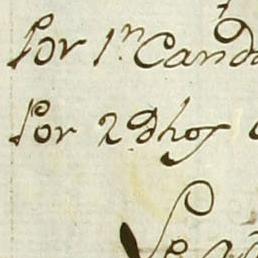 Por 1,, n Cand
Por 2 Dhos
Se a